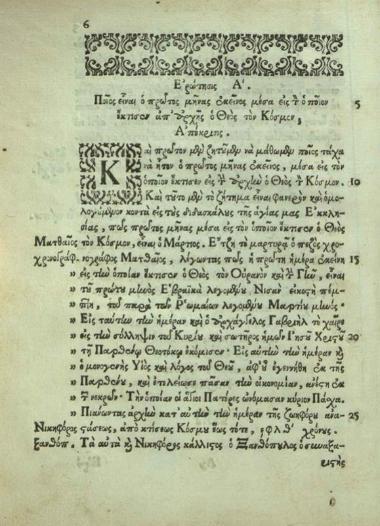 6
Ἐρώτησις Α΄.
Ποῖος εἶναι ὁ πρῶτος μῆνας ἐκεῖνος μέσα εἰς τὸν ὁποῖον 5
ἔκτισεν ἀπ' ἀρχῆς ὁ Θεὸς τὸν Κόσμον,
Ἀπόκρισις.
Καὶ πρῶτον μὲν ζητοῦμεν νὰ μάθωμεν ποῖος τάχα
νὰ ἦτον ὁ πρῶτος μῆνας ἐκεῖνος, μέσα εἰς τὸν
ὁποῖον ἔκτισεν εἰς τὴν ἀρχὴν ὁ Θεὸς τὸν Κόσμον. 10
Καὶ τοῦτο μὲν τὸ ζήτημα εἶναι φανερὸν καὶ ὁμο-
λογούμενον κοντὰ εἰς τοὺς διδασκάλους τῆς ἁγίας μας Ἐκκλη-
σίας, πῶς πρῶτος μῆνας μέσα εἰς τὸν ὁποῖον ἔκτισεν ὁ Θεὸς
Ματθαῖος τὸν Κόσμον, εἶναι ὁ Μάρτιος. Ἔτζη τὸ μαρτυρᾷ ὁ πεζὸς χρο-
χρονογράφ. νογράφος Ματθαῖος, λέγωντας πῶς ἡ πρώτη ἡμέρα ἐκείνη 15
„ εἰς τὴν ὁποίαν ἔκτισεν ὁ Θεὸς τὸν Οὐρανὸν καὶ τὴν Γῆν, εἶναι
„ τοῦ πρώτου μηνὸς Ἑβραϊκὰ λεγομένου Νισὰν εἰκοστὴ πέμ-
„ πτη, τοῦ παρὰ τῶν Ῥωμαίων λεγομένου Μαρτίου μηνός.
„ Εἰς ταύτην τὴν ἡμέραν καὶ ὁ ἀρχάγγελος Γαβριὴλ τὸ χαῖρε
„ εἰς τὴν σύλληψιν τοῦ Κυρίου καὶ σωτῆρος ἡμῶν Ἰησοῦ Χριστοῦ 20
„ τῇ Παρθένῳ Θεοτόκῳ ἐκόμισεν. Εἰς αὐτὴν τὴν ἡμέραν καὶ
„ ὁ μονογενὴς Υἱὸς καὶ λόγος τοῦ Θεοῦ, ἀφοῦ ἐγεννήθη ἐκ τῆς
„ Παρθένου, καὶ ἐτελείωσε πᾶσαν τὴν οἰκονομίαν, ἀνέστη ἐκ
„ τῶν νεκρῶν. Τὴν ὁποίαν οἱ ἅγιοι Πατέρες ὠνόμασαν κύριον Πάσχα.
„ Πιάνωντας ἀρχὴν κατ' αὐτὴν τὴν ἡμέραν τῆς ζωηφόρου ἀνα- 25
Νικηφόρος στάσεως, ἀπὸ κτίσεως Κόσμου ἕως τότε, ͵εφλθ΄ χρόνους.
ξανθόπ. Τὰ αὐτὰ καὶ Νικηφόρος κάλλιστος ὁ Ξανθόπουλος ὁ συναξα-
ριστὴς